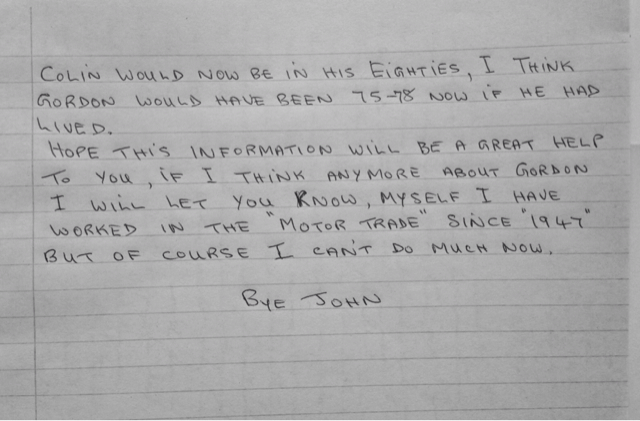 COLIN WOULD NOW BE IN HIS EIGHTIES, I THINK
GORDON WOULD HAVE BEEN 75-78 NOW IF HE HAD
LIVED.
HOPE THIS INFORMATION WILL BE A GREAT HELP
TO YOU, IF I THINK ANYMORE ABOUT GORDON
I WILL LET YOU KNOW, MYSELF I HAVE
WORKED IN THE "MOTOR TRADE" SINCE "1947"
BUT OF COURSE I CAN'T DO MUCH NOW.
BYE JOHN